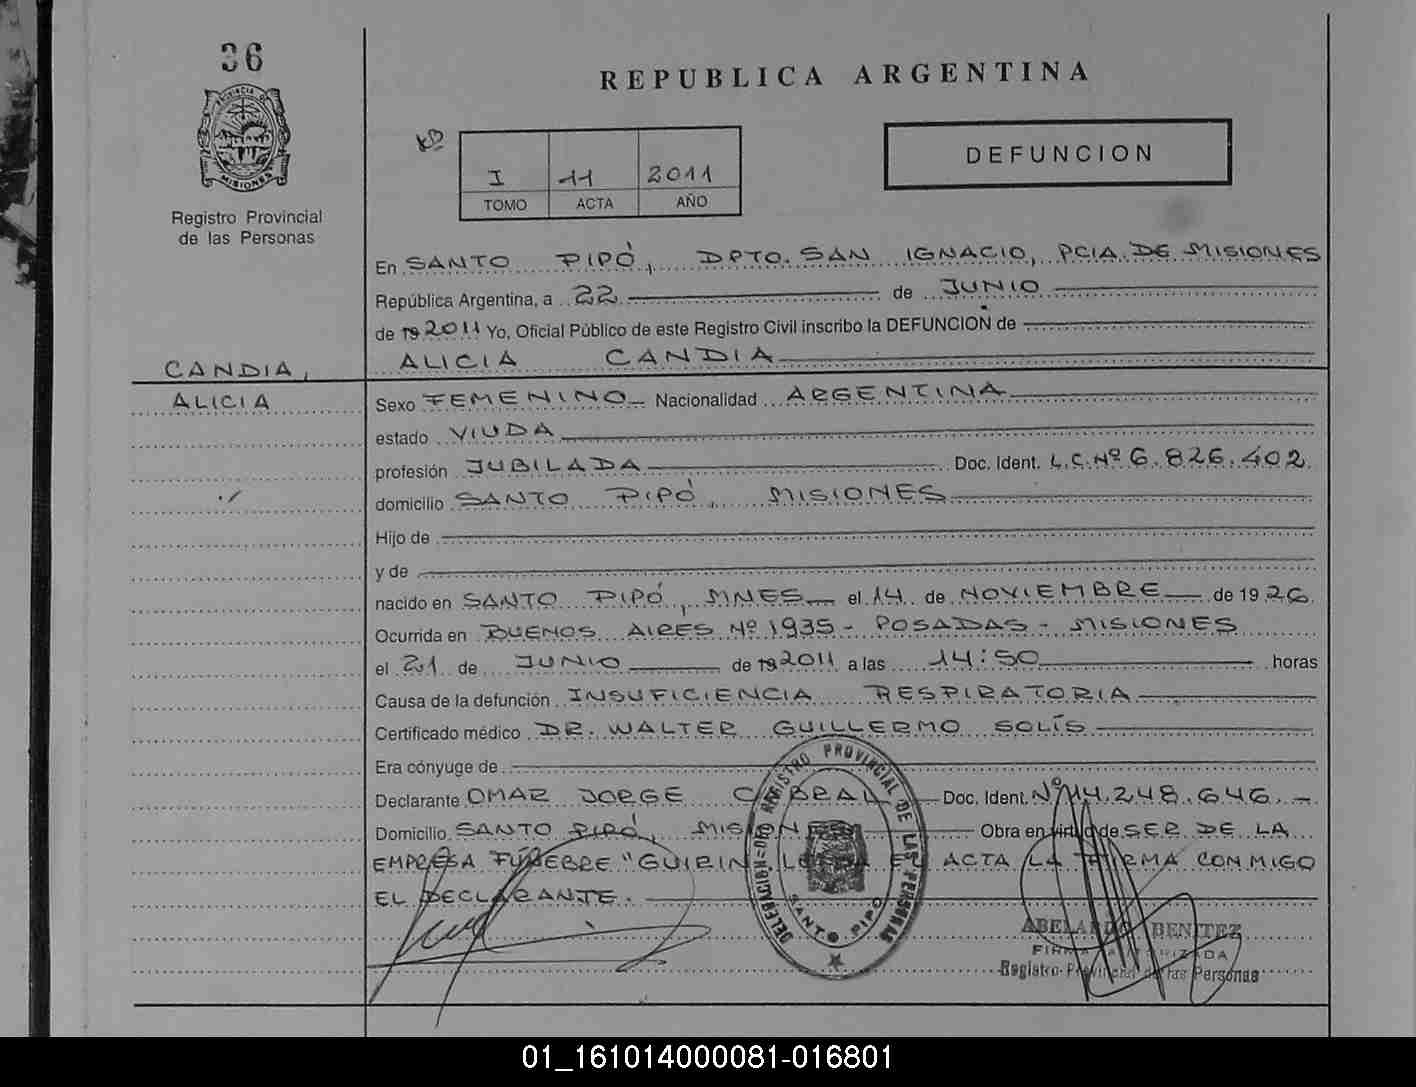 36
REPUBLICA ARGENTINA
PROVINCIA DE
MISIONES
Registro Provincial
de las Personas
I 11 2011
TOMO ACTA AÑO
DEFUNCION
En SANTO PIPÓ, DPTO. SAN IGNACIO, PCIA. DE MISIONES
República Argentina, a 22 de JUNIO
de 19 2011 Yo, Oficial Público de este Registro Civil inscribo la DEFUNCION de
ALICIA CANDIA
CANDIA,
ALICIA
Sexo FEMENINO Nacionalidad ARGENTINA
estado VIUDA
profesión JUBILADA Doc. Ident. L.C. Nº 6.826.402
domicilio SANTO PIPÓ, MISIONES
Hijo de
y de
nacido en SANTO PIPÓ, MNES el 14 de NOVIEMBRE de 19 26
Ocurrida en BUENOS AIRES Nº 1935 - POSADAS - MISIONES
el 21 de JUNIO de 19 2011 a las 14:50 horas
Causa de la defunción INSUFICIENCIA RESPIRATORIA
Certificado médico DR. WALTER GUILLERMO SOLÍS
Era cónyuge de
Declarante OMAR JORGE CABRAL Doc. Ident. Nº 14.248.646.-
Domicilio SANTO PIPÓ, MISIONES Obra en virtud de SER DE LA
EMPRESA FÚNEBRE "GUIRIN. ACTA LA FIRMA CONMIGO
EL DECLARANTE.
DELEGACION REGISTRO PROVINCIAL DE LAS PERSONAS
SANTO PIPÓ
ABELARDO BENITEZ
FIRMA AUTORIZADA
Registro Provincial de las Personas
01_161014000081-016801